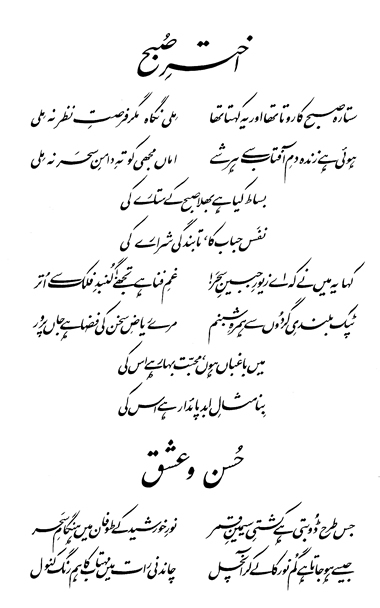 اخترِ صُبح
ستارہ صبح کا روتا تھا اور یہ کہتا تھا
ملی نگاہ مگر فرصتِ نظر نہ ملی
ہوئی ہے زندہ دمِ آفتاب سے ہر شے
اماں مجھی کو تہِ دامنِ سحر نہ ملی
بساط کیا ہے بھلا صبح کے ستارے کی
نفَس حباب کا، تابندگی شرارے کی
کہا یہ میں نے کہ اے زیورِ جبینِ سحر!
غمِ فنا ہے تجھے! گُنبدِ فلک سے اُتر
ٹپک بلندیِ گردُوں سے ہمرہِ شبنم
مرے ریاضِ سخن کی فضا ہے جاں پرور
میں باغباں ہوں، محبت بہار ہے اس کی
بِنا مثالِ ابد پائدار ہے اس کی
حُسن و عشق
جس طرح ڈُوبتی ہے کشتیِ سیمینِ قمر
نورِ خورشید کے طوفان میں ہنگامِ سحَر
جیسے ہو جاتا ہے گُم نور کا لے کر آنچل
چاندنی رات میں مہتاب کا ہم رنگ کنول